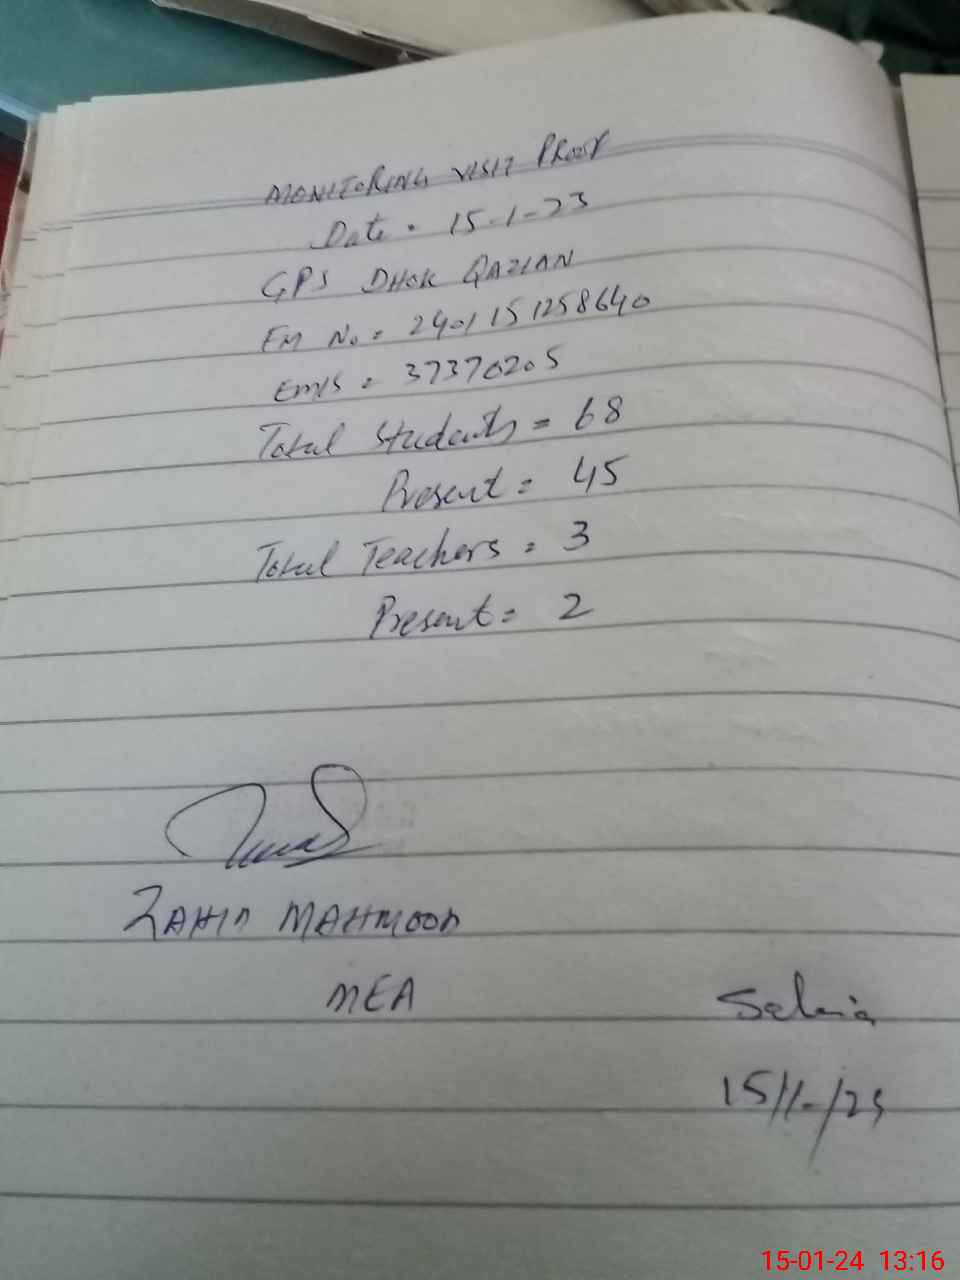 MONITORING VISIT PROOF
Date. 15-1-23
GPS DHOK QAZIAN
EM No = 2401151258640
EMIS = 37370205
Total Students = 68
Present = 45
Total Teachers = 3
Present = 2
ZAHID MAHMOOD
MEA
15/1-/23
15-01-24 13:16